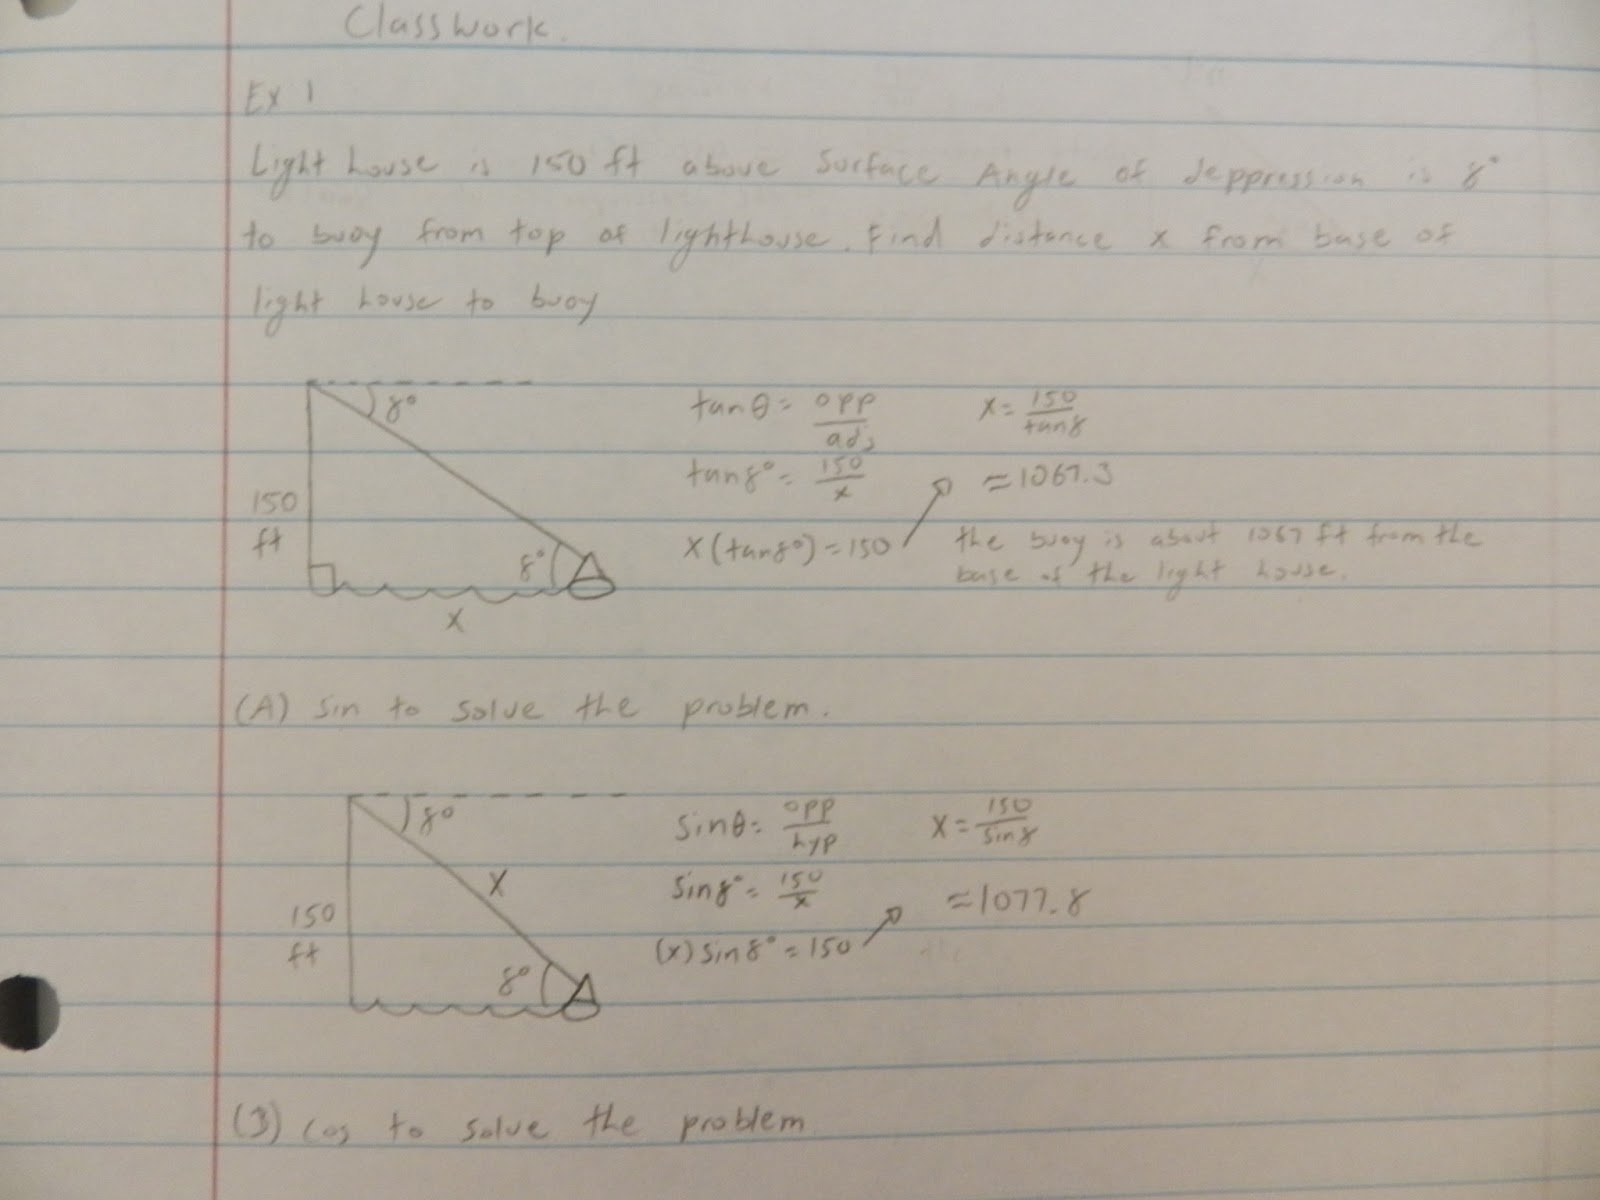 Classwork.
Ex 1
Light house is 150 ft above Surface Angle of deppression is 8°
to buoy from top of lighthouse. Find distance x from base of
light house to buoy
8°
150
ft
8°
x
tanθ = opp/adj
tan8° = 150/x
x(tan8°) = 150
x = 150/tan8
≈ 1067.3
the buoy is about 1067 ft from the
base of the light house.
(A) Sin to solve the problem.
8°
x
150
ft
8°
Sinθ = opp/hyp
Sin8° = 150/x
(x) Sin8° = 150
x = 150/Sin8
≈ 1077.8
(B) Cos to solve the problem